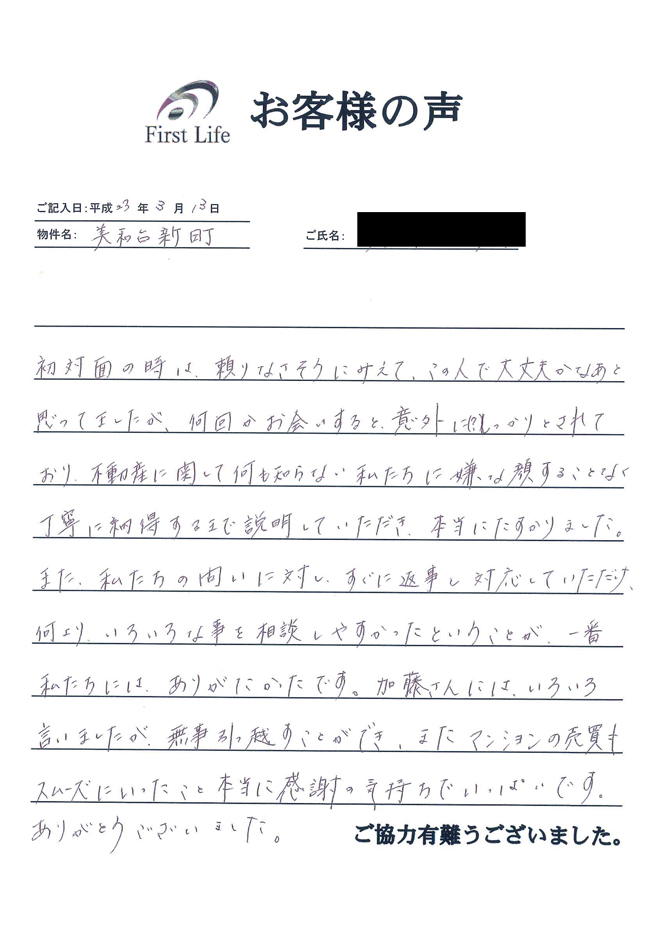 First Life
お客様の声
ご記入日：平成23年3月13日
物件名： 美和台新町
ご氏名：
初対面の時は、頼りなさそうにみえて、この人で大丈夫かなあと
思ってましたが、何回かお会いすると、意外に
しっかりとされて
おり、不動産に関して何も知らない私たちに嫌な顔することなく
丁寧に納得するまで説明していただき、本当にたすかりました。
また、私たちの問いに対し、すぐに返事し対応していただけ、
何より、いろいろな事を相談しやすかったということが、一番
私たちには、ありがたかたです。加藤さんには、いろいろ
言いましたが、無事引っ越すことができ、またマンションの売買も
スムーズにいったこと本当に感謝の気持ちでいっぱいです。
ありがとうございました。
ご協力有難うございました。